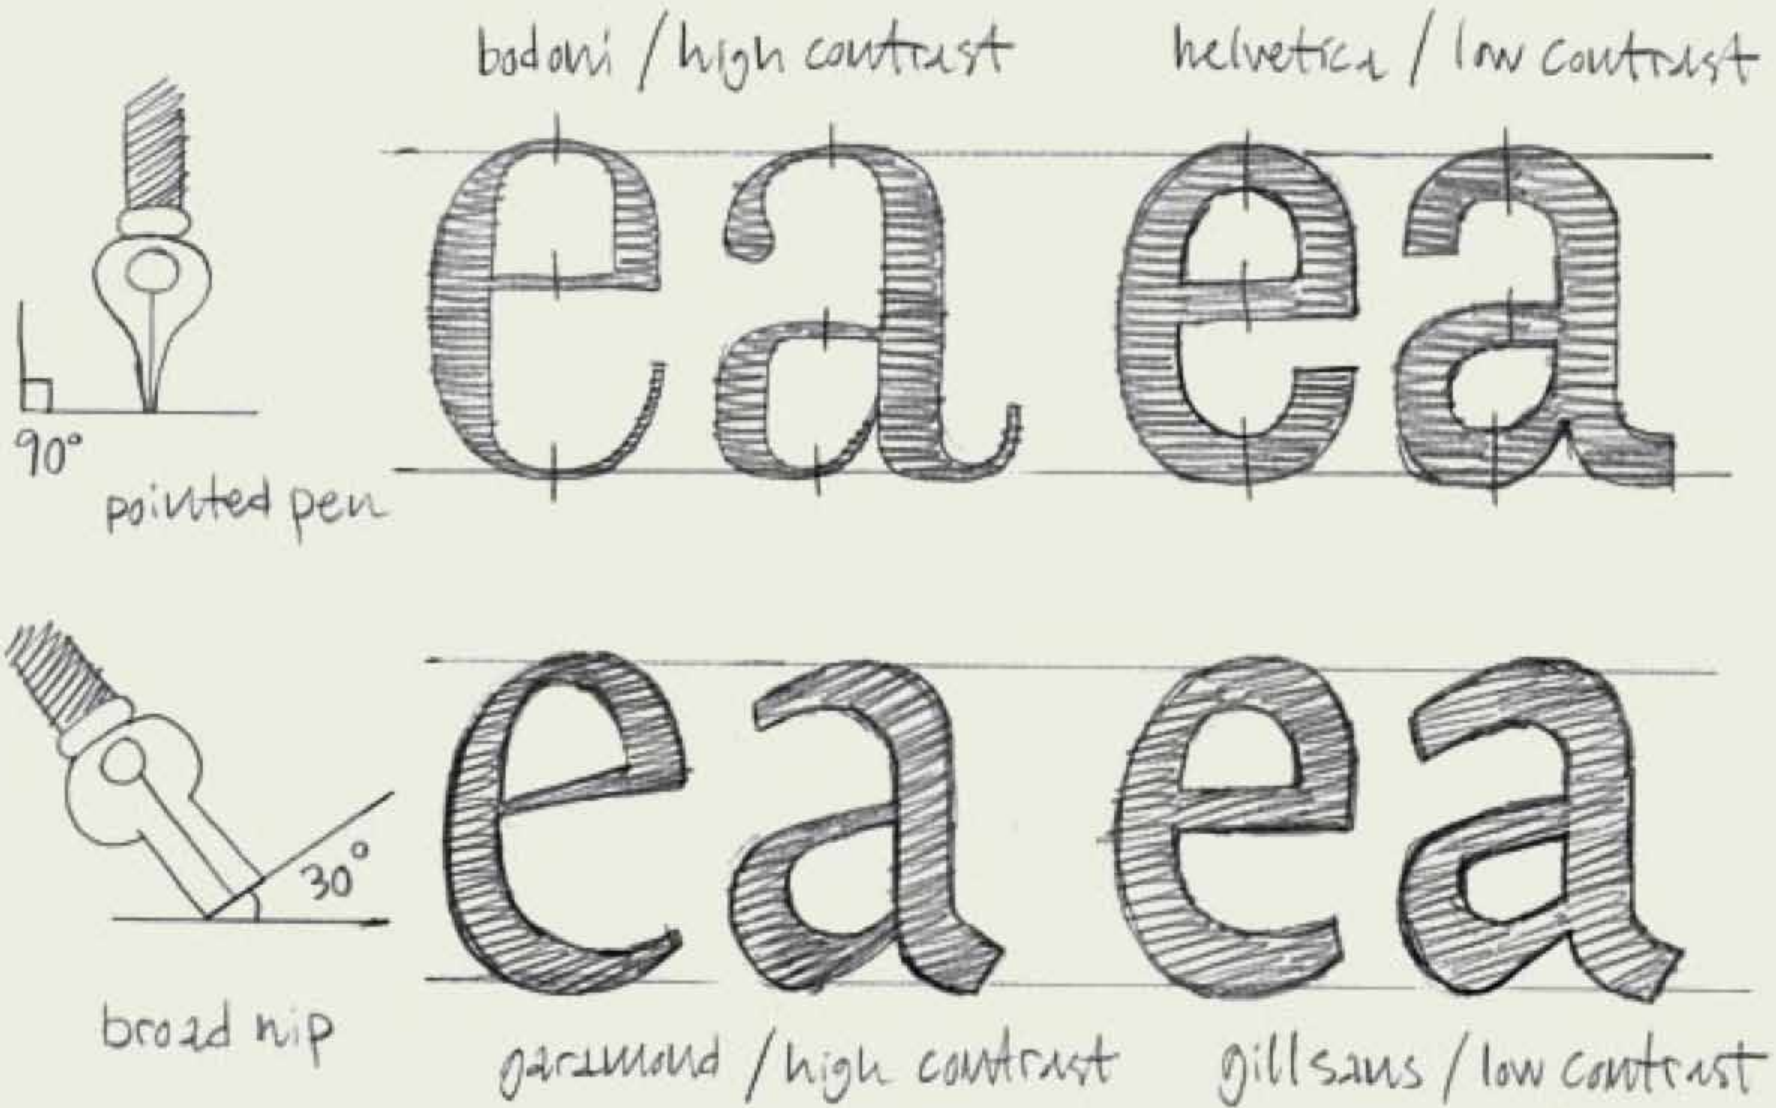 bodoni / high contrast
helvetica / low contrast
e a
e a
90°
pointed pen
e a
e a
30°
broad nip
garamond / high contrast
gill sans / low contrast